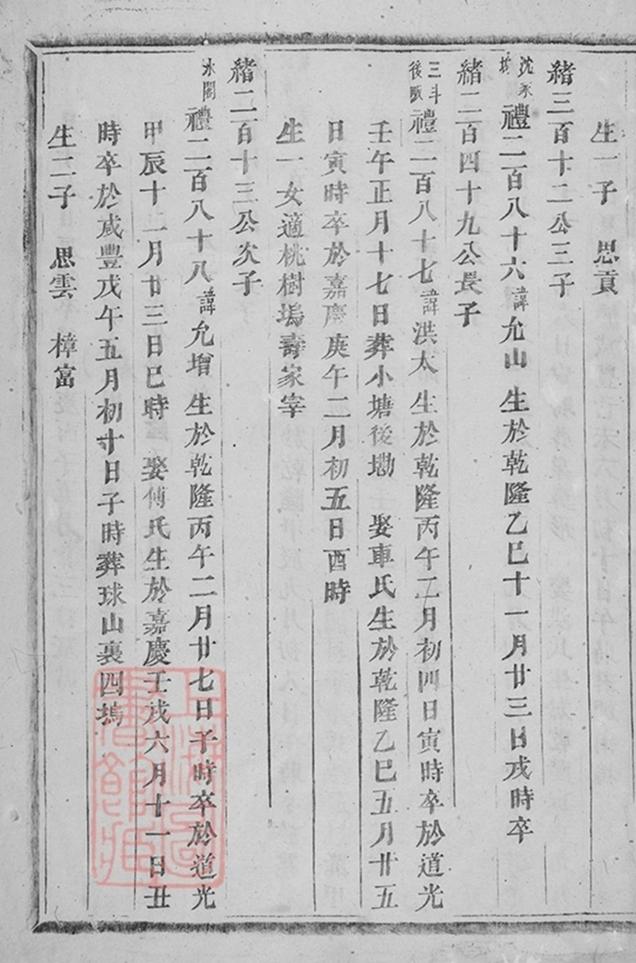 生一子 思貢
緒三百十二公三子
沈家
禮二百八十六諱允山 生於乾隆乙巳十一月廿三日戌時卒
緒二百四十九公長子
三斗
後
禮二百八十七諱洪太 生於乾隆丙午二月初四日寅時卒於道光
壬午正月十七日葬小塘後墈 娶車氏生於乾隆乙巳五月廿五
日寅時卒於嘉慶庚午二月初五日酉時
生一女適桃樹塢壽家宰
緒二百十三公次子
水閣
禮二百八十八諱允增 生於乾隆丙午二月廿七日午時卒於道光
甲辰十一月廿三日巳時 娶傅氏生於嘉慶壬戌六月十一日丑
時卒於咸豐戊午五月初十日子時葬球山裏四塢
生二子 思雲 樟富
上海圖書館藏